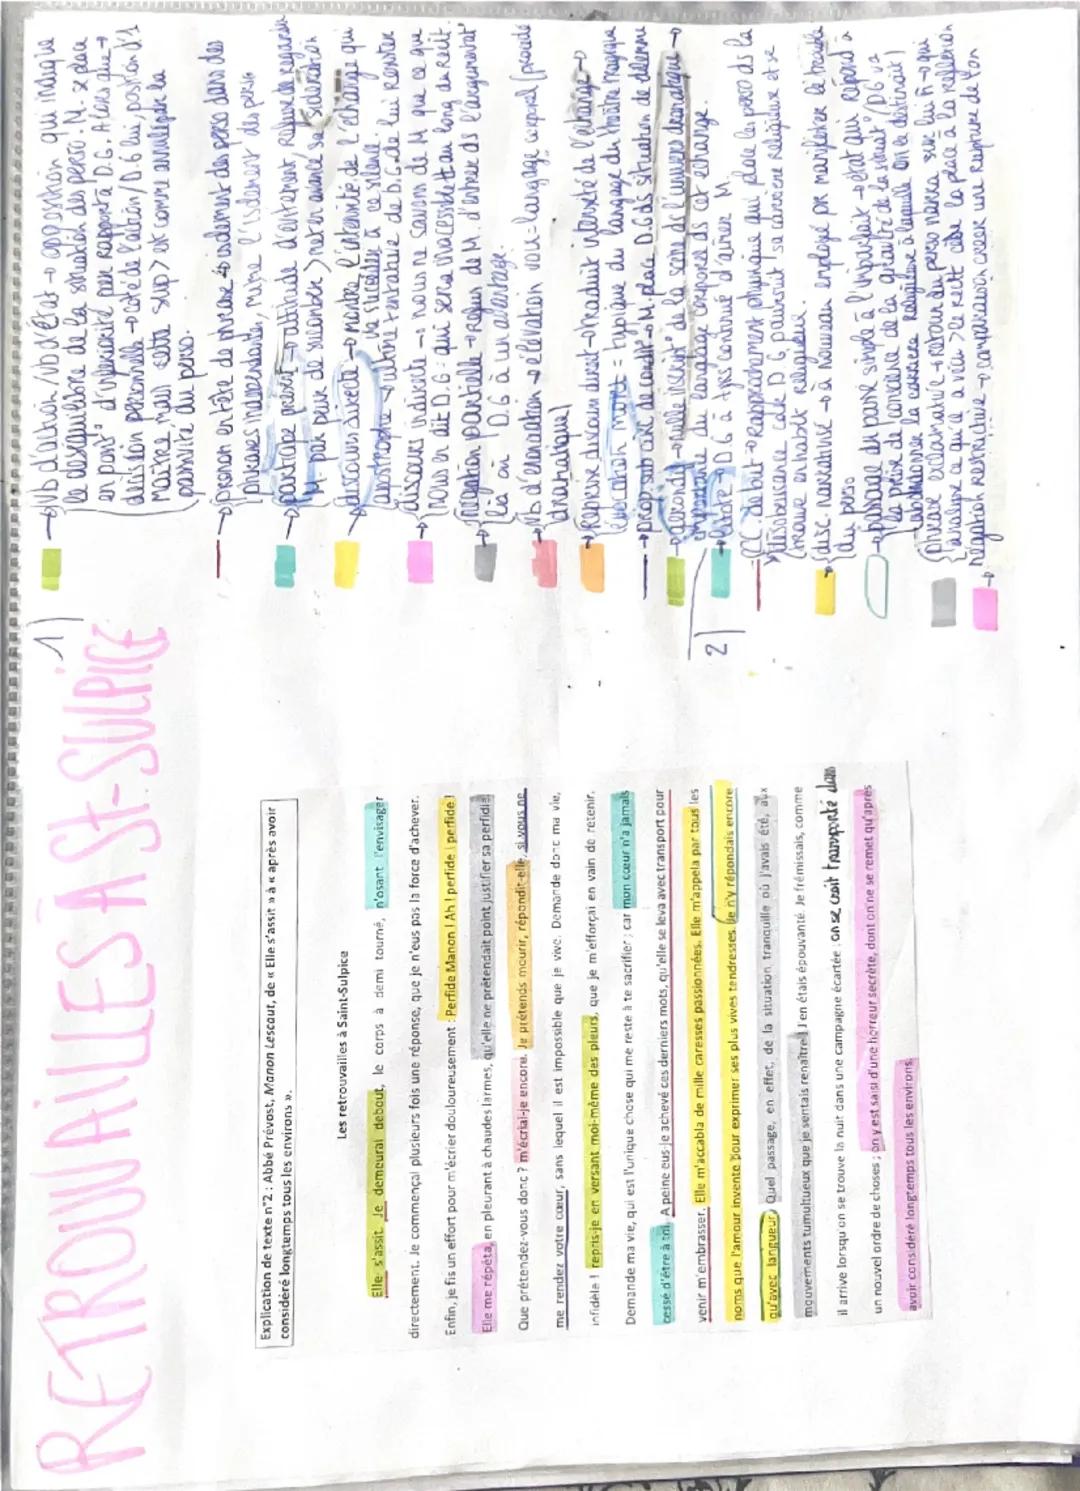 RETROUVAILLES À ST-SULPICE
Explication de texte n°2 : Abbé Prévost, Manon Lescaut, de « Elle s'assit » à « après avoir
considéré longtemps tous les environs ».
Les retrouvailles à Saint-Sulpice
Elle s'assit. Je demeurai debout, le corps à demi tourné, n'osant l'envisager
directement. Je commençai plusieurs fois une réponse, que je n'eus pas la force d'achever.
Enfin, je fis un effort pour m'écrier douloureusement : Perfide Manon ! Ah ! perfide ! perfide !
Elle me répéta, en pleurant à chaudes larmes, qu'elle ne prétendait point justifier sa perfidie.
Que prétendez-vous donc ? m'écriai-je encore. Je prétends mourir, répondit-elle, si vous ne
me rendez votre cœur, sans lequel il est impossible que je vive. Demande donc ma vie,
infidèle ! repris-je en versant moi-même des pleurs, que je m'efforçai en vain de retenir.
Demande ma vie, qui est l'unique chose qui me reste à te sacrifier ; car mon cœur n'a jamais
cessé d'être à toi. A peine eus-je achevé ces derniers mots, qu'elle se leva avec transport pour
venir m'embrasser. Elle m'accabla de mille caresses passionnées. Elle m'appela par tous les
noms que l'amour invente pour exprimer ses plus vives tendresses. Je n'y répondais encore
qu'avec langueur. Quel passage, en effet, de la situation tranquille où j'avais été, aux
mouvements tumultueux que je sentais renaître ! J'en étais épouvanté. Je frémissais, comme
il arrive lorsqu'on se trouve la nuit dans une campagne écartée : on se croit transporté dans
un nouvel ordre de choses ; on y est saisi d'une horreur secrète, dont on ne se remet qu'après
avoir considéré longtemps tous les environs.
1)
→ Vb d'action / vb d'état → opposition qui indique
le déséquilibre de la situation des perso. M. se place
en post° d'infériorité par rapport à D.G. Alors que →
décision personnelle → côté de l'action / D.G lui, position d'1
maître, mais cette sup> est comme annulée par la
passivité du perso.
→ pronom en tête de phrase → isolement des perso dans des
phrases indépendantes, mime l'isolement des perso
→ participe présent → attitude d'évitement. Refuse de regarder
M. par peur de succomber > met en avance sa sidération
→ discours direct → montre l'intensité de l'échange qui
va succéder à ce silence.
apostrophe → ultime tentative de D.G. de lui résister
→ discours indirecte → nous ne savons de M que ce que
nous en dit D.G : qui sera inaccessible tt au long du récit.
→ négation partielle → Refus de M. d'entrer ds l'argumentat°
lié on D.G à un avantage.
→ Vb d'énonciation → élévation voix = langage corporel (procédé
→ Reprise discours direct → traduit intensité de l'échange →
évocation mort = typique du langage du théâtre tragique
→ prop sub circ de condit° → M. place D.G ds situation de dilemme
→ gérondif → nvelle inscript° de la scène ds l'univers dramatique →
importance du langage corporel ds cet échange.
2)
→ litote → D.G a tjrs continué d'aimer M
→ CC de but → Rapprochement physique qui place les perso ds la
désobéissance car D.G partout sa carrière religieuse et se
trouve en habit religieux.
→ disc narrativé → à nouveau employé pr manifester le trouble
du perso
→ passage du passé simple à l'imparfait → état qui répond à
la prise de conscience de la gravité de la situat° / D.G va
abandonner la carrière religieuse à laquelle on le destinait
→ phrase exclamative → retour du perso narra sur lui m → qui
analyse ce qu'il a vécu > le récit cède la place à la réflexion
→ négation restrictive → comparaison créer une rupture de ton